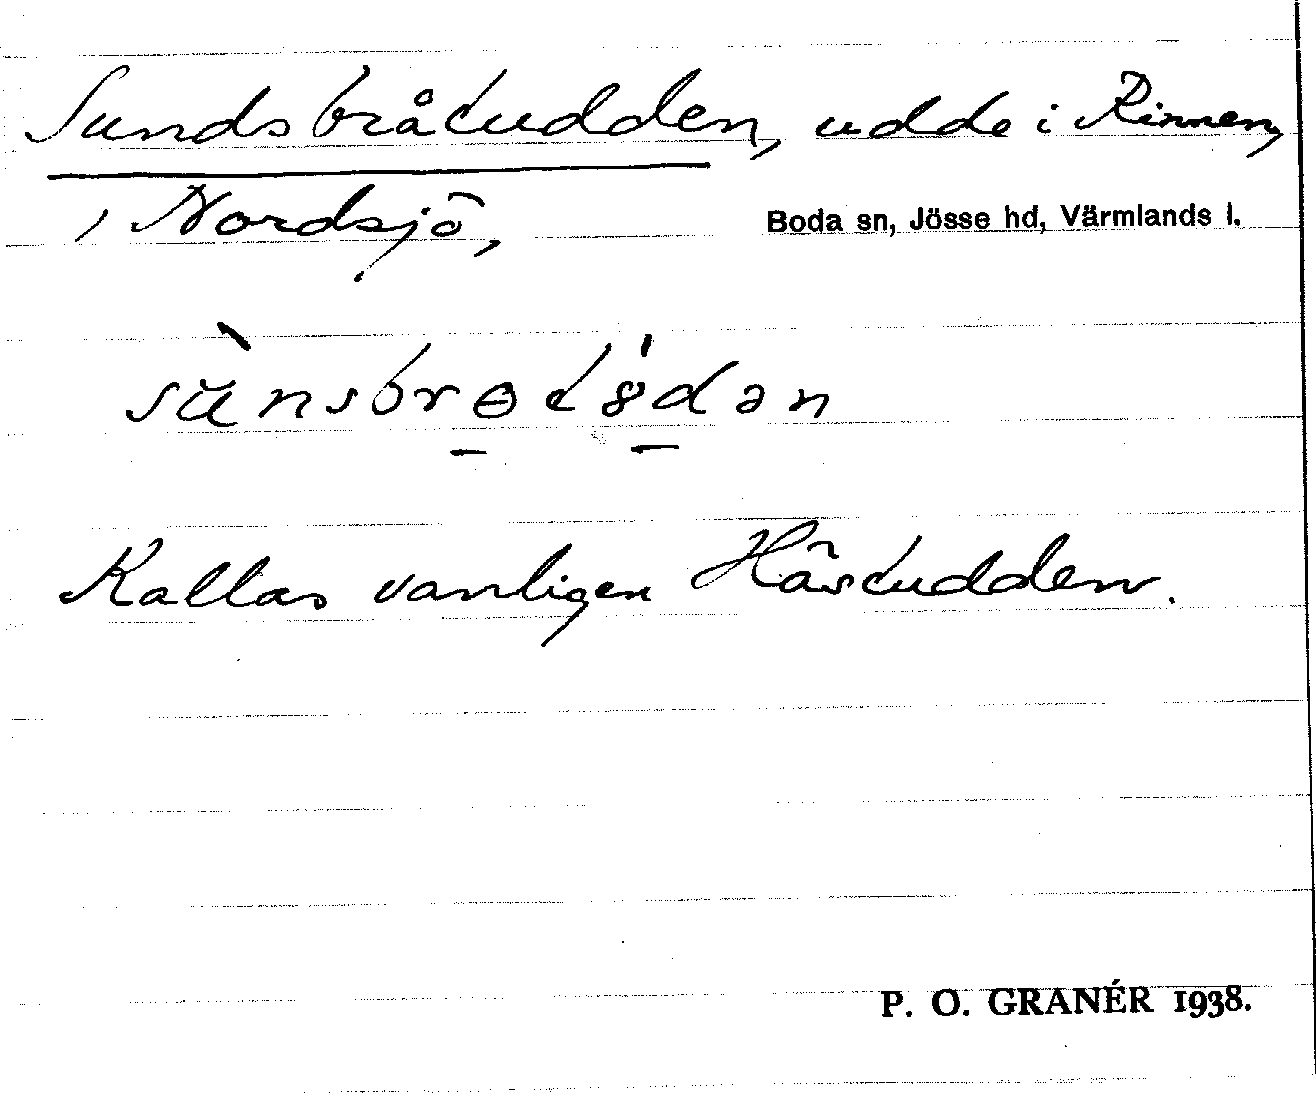 Sundsbråtudden, udde i Rinnen,
i Nordsjö, Boda sn, Jösse hd, Värmlands l.
Kallas vanligen Hästudden.
P. O. GRANÉR 1938.